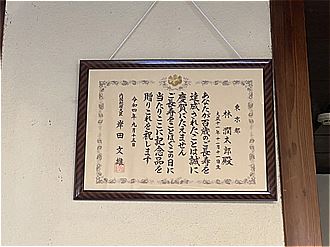 東京都
林潤太郎殿
あなたが百歳のご長寿を
達成されたことは誠に
慶賀にたえません
ご長寿をことほぐこの日に
当たりここに記念品を
贈りこれを祝します
令和四年九月十五日
内閣総理大臣 岸田文雄